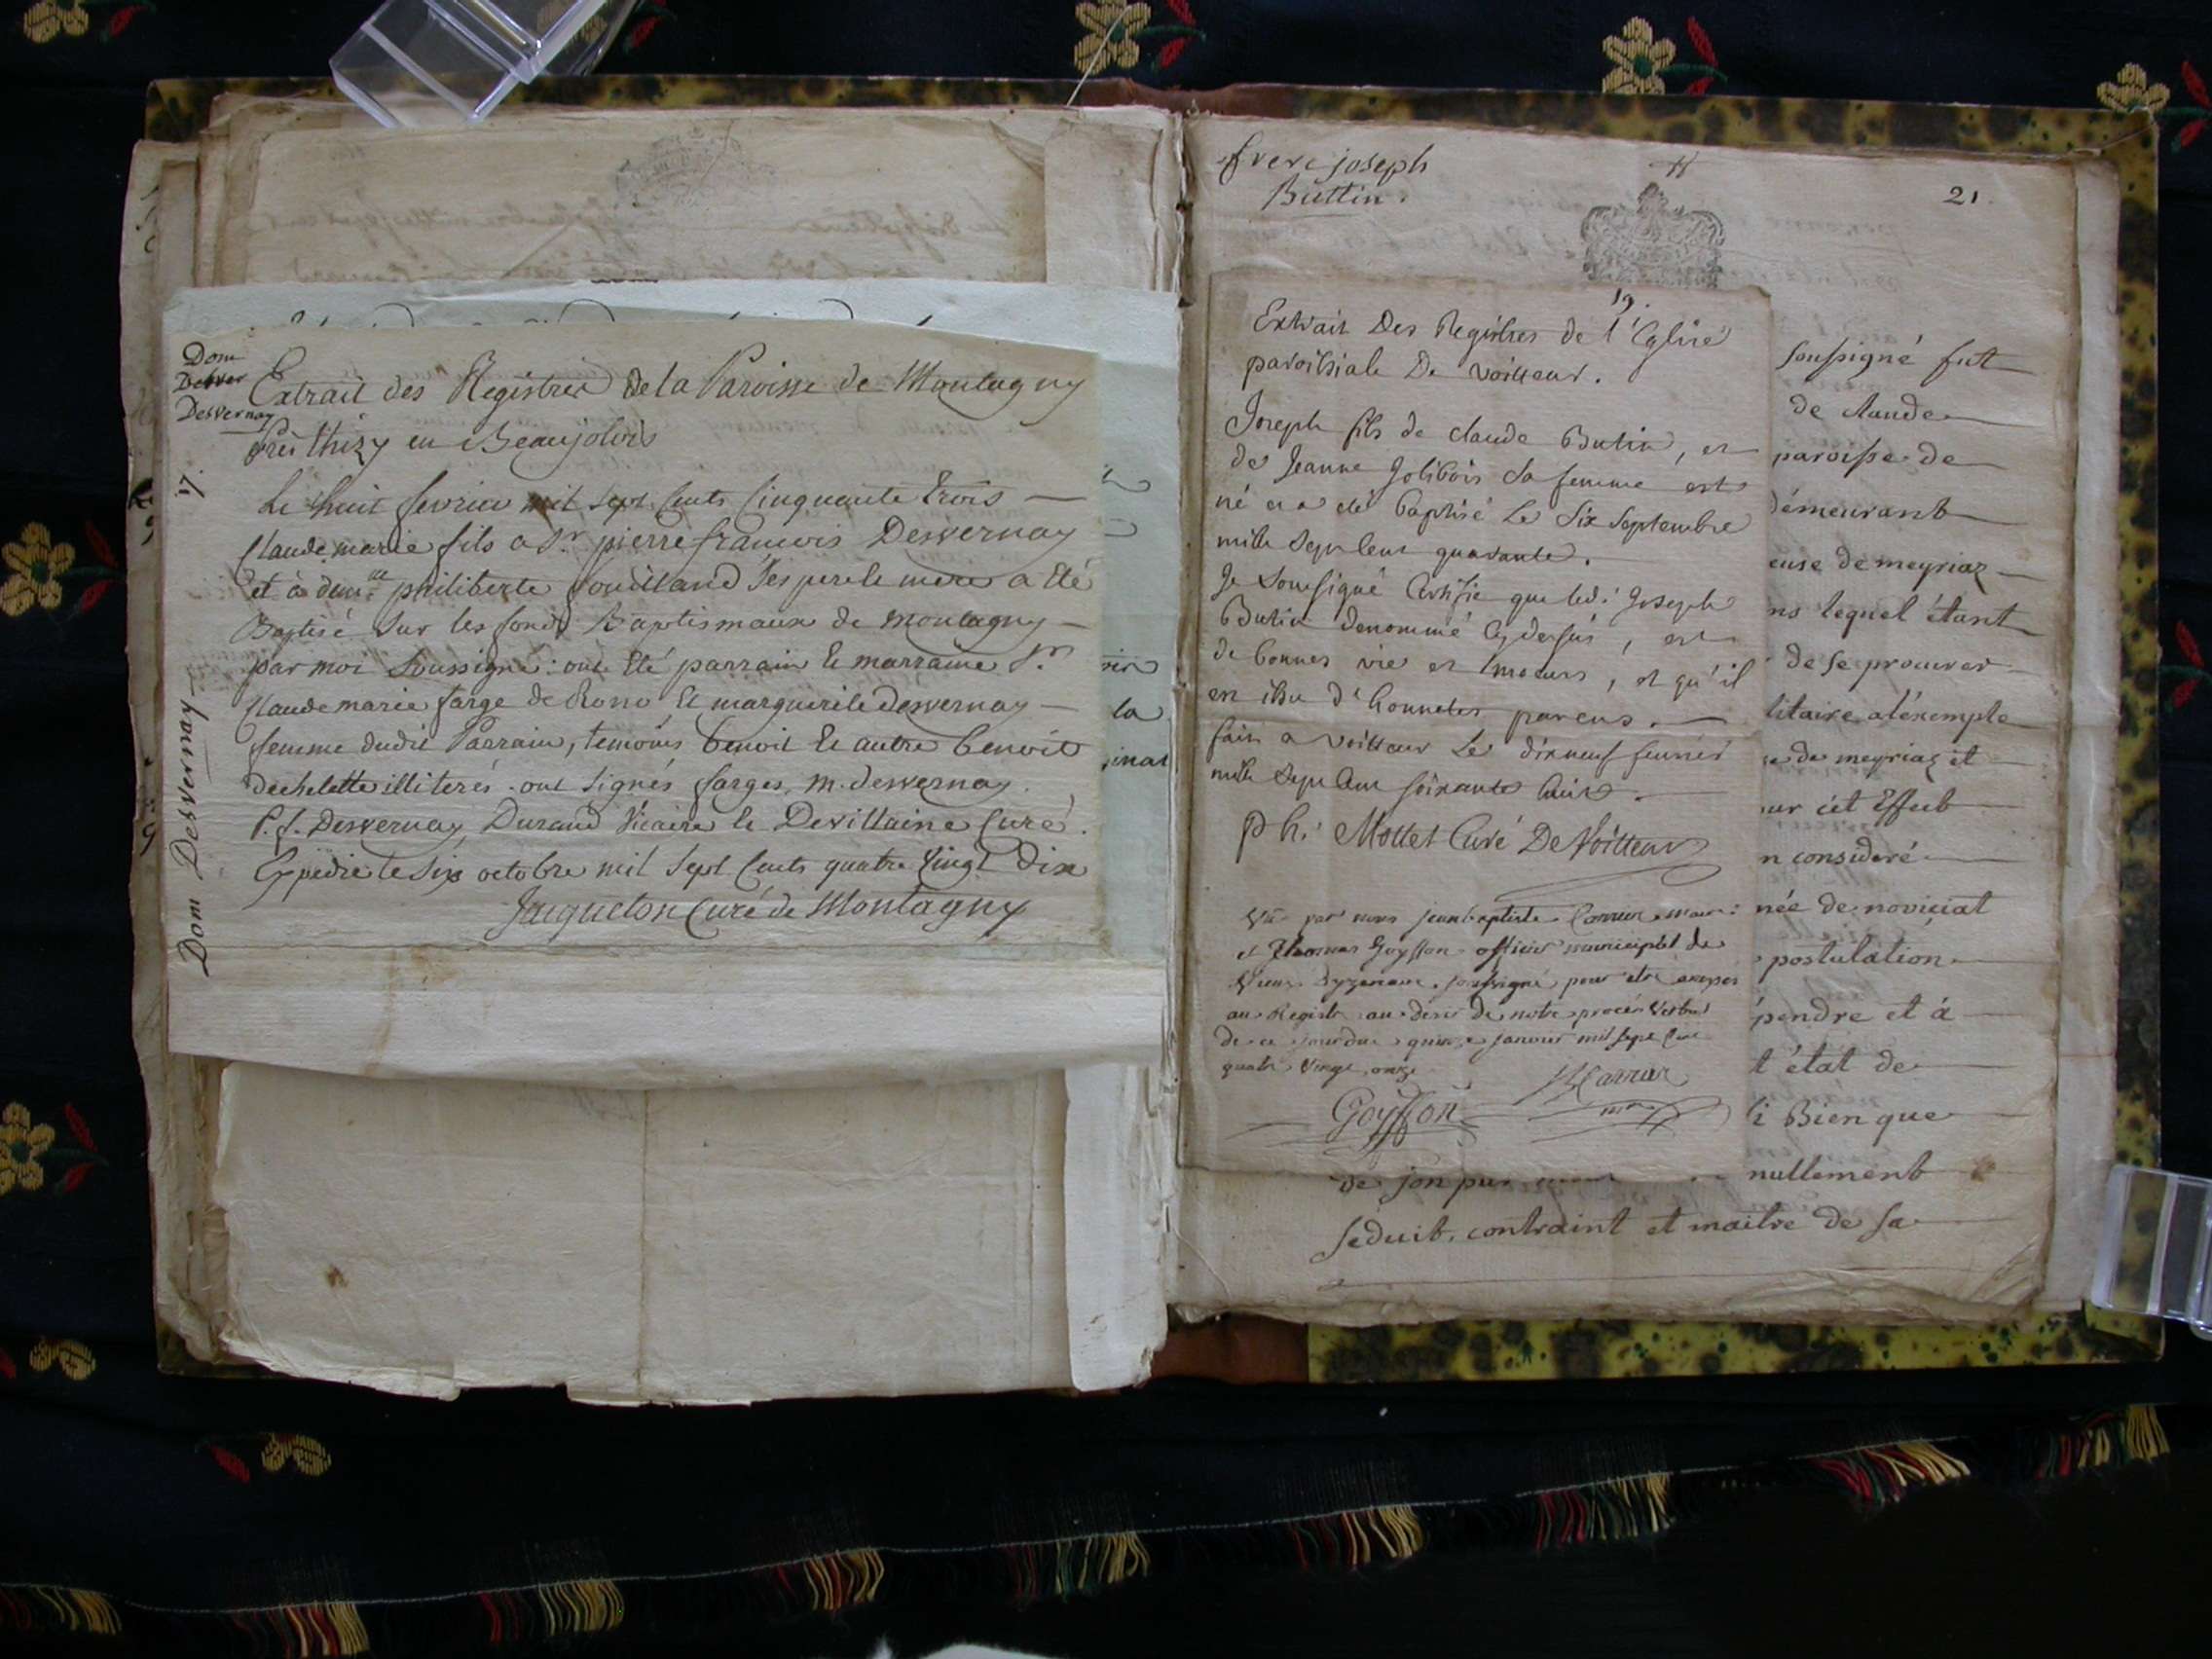 Dom
Desver
Desvernay
Extrait des Registres de la Paroisse de Montagny
près thizy en Beaujolois
17.
Le huit fevrier mil sept Cents Cinquante trois
Claude marie fils a Sr pierre francois Desvernay
et à dem.lle philiberte fouilland ses pere le mere a Eté
Baptisé sur les fonds Baptismaux de montagny
par moi soussigné: ont Eté parrain le marraine Sr
Claude marie farge de Rono le marguerite desvernay
femme dudit Parrain, temoins benoit le autre benoit
dechelette illiterés. ont signés farges, m. desvernay.
P. f. Desvernay Durand Vicaire le Devillaine Curé.
Expédié le six octobre mil sept Cents quatre vingt Dix
Juqueton Curé de Montagny
Dom Desvernay
la
frere joseph
Buttin.
21.
19.
Extrait Des Registres de l'Eglise
paroissiale De voitteur.
Joseph fils de claude Butin, et
de Jeanne Jolibois sa femme est
né et a été baptisé le six septembre
mille sept cent quarante.
Je soussigné Certifie que led: Joseph
Butin denommé cy dessus, est
de bonnes vie et moeurs, et qu'il
est issu d'honnetes parens.
fait a voitteur le dixneuf fevrier
mille sept cent soixante huit.
ph: Mottet Curé De Voitteur
Vû par nous jeanbaptiste Carrier maire
et Thomas Goyffon officier municipal de
Vieux Dyzenave soussigné pour etre annexés
au Registre au desir de notre procès Verbal
de ce jourdui quinze janvier mil sept Cent
quatre Vingt onze
Goyffon
soussigné fut
de claude
paroisse de
démeurant
euse de meyriaz
ns lequel étant
de se procurer
litaire, à l'éxemple
se de meyriaz et
ur cét Effect
n consideré
née de noviciat
postulation
pendre et à
t état de
i Bien que
de son pur nullement
séduit, contraint et maitre de sa